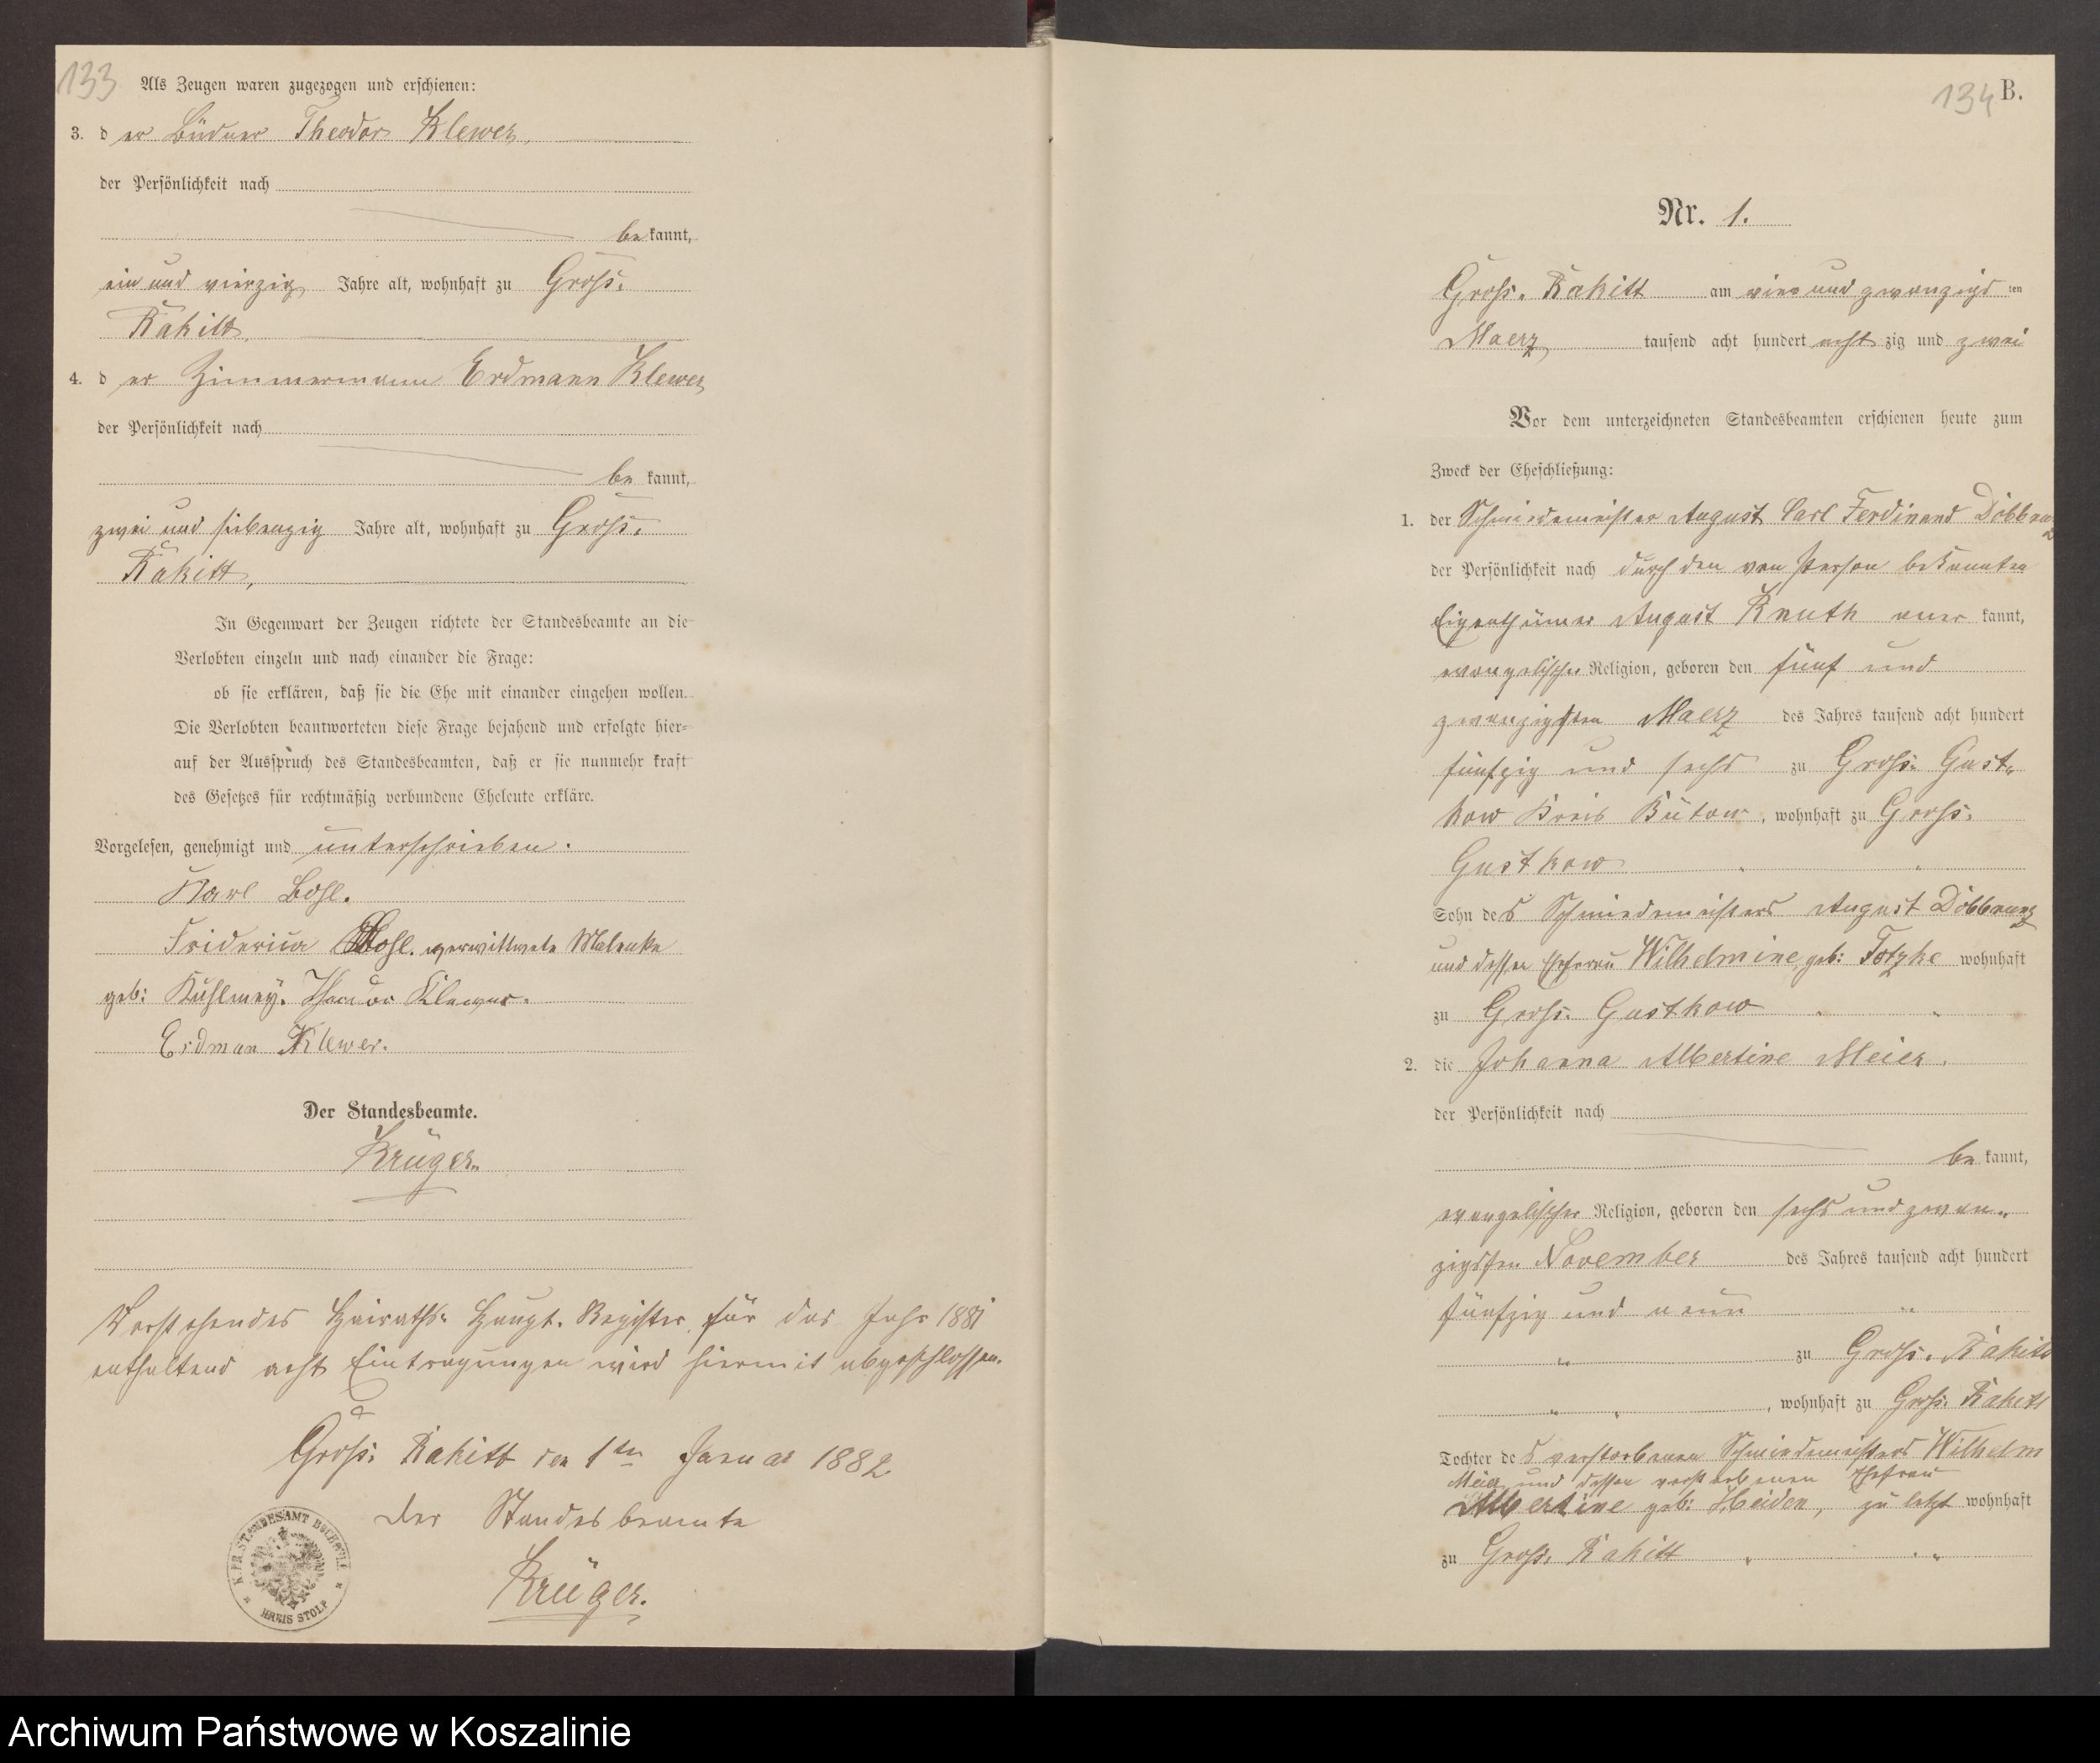 133
Als Zeugen waren zugezogen und erschienen:
3. d er Büdner Theodor Klewer,
der Persönlichkeit nach
be kannt,
ein und vierzig Jahre alt, wohnhaft zu Gross-
Rakitt,
4. d er Zimmermann Erdmann Klewer
der Persönlichkeit nach
be kannt,
zwei und siebenzig Jahre alt, wohnhaft zu Gross-
Rakitt,
In Gegenwart der Zeugen richtete der Standesbeamte an die
Verlobten einzeln und nach einander die Frage:
ob sie erklären, daß sie die Ehe mit einander eingehen wollen.
Die Verlobten beantworteten diese Frage bejahend und erfolgte hier-
auf der Ausspruch des Standesbeamten, daß er sie nunmehr kraft
des Gesetzes für rechtmäßig verbundene Eheleute erkläre.
Vorgelesen, genehmigt und unterschrieben.
Karl Bohl.
Friderica Bohl. verwittwete Malenke
geb: Kuhlmey. Theodor Klewer.
Erdman Klewer.
Der Standesbeamte.
Krüger.
Vorstehendes Heiraths- Haupt- Register für das Jahr 1881
enthaltend acht Eintragungen wird hiermit abgeschlossen.
Gross- Rakitt den 1ten Januar 1882
Der Standesbeamte
Krüger.
K. PR. STANDESAMT
KREIS STOLP
134 B.
Nr. 1.
Gross- Rakitt am vier und zwanzigs ten
Maerz tausend acht hundert acht zig und zwei
Vor dem unterzeichneten Standesbeamten erschienen heute zum
Zweck der Eheschließung:
1. der Schmiedemeister August Carl Ferdinand Döbberz
der Persönlichkeit nach durch den von Person bekannten
Eigenthümer August Knuth aner kannt,
evangelischer Religion, geboren den fünf und
zwanzigsten Maerz des Jahres tausend acht hundert
fünfzig und sechs zu Gross- Gust-
kow Kreis Bütow, wohnhaft zu Gross-
Gustkow
Sohn des Schmiedemeisters August
und dessen Ehefrau Wilhelmine geb: Totzke wohnhaft
zu Gross- Gustkow
2. die Johanna Albertine Meier,
der Persönlichkeit nach
be kannt,
evangelischer Religion, geboren den sechs und zwan-
zigsten November des Jahres tausend acht hundert
fünfzig und neun
zu Gross- Rakitt
, wohnhaft zu Gross- Rakitt
Tochter des verstorbenen Schmiedemeisters Wilhelm
Meier und dessen verstorbenen Ehefrau
Albertine geb: Heiden, zu letzt wohnhaft
zu Gross- Rakitt
Archiwum Państwowe w Koszalinie